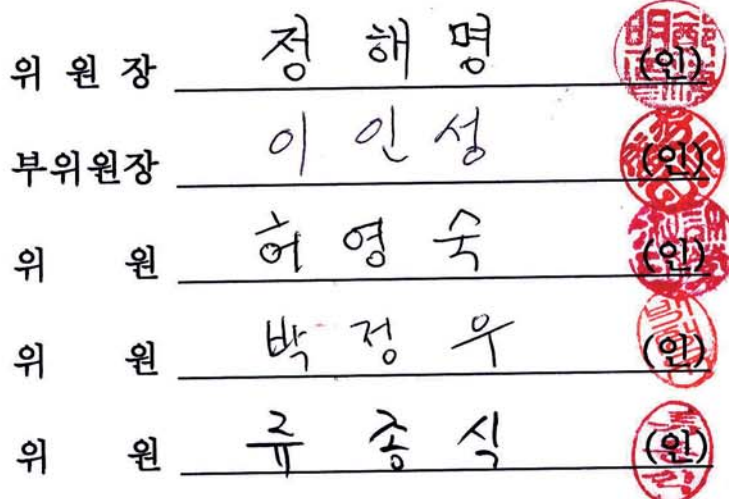 위 원 장 정 해 명 (인)
부위원장 이 인 성 (인)
위 원 허 영 숙 (인)
위 원 박 정 우 (인)
위 원 류 종 식 (인)